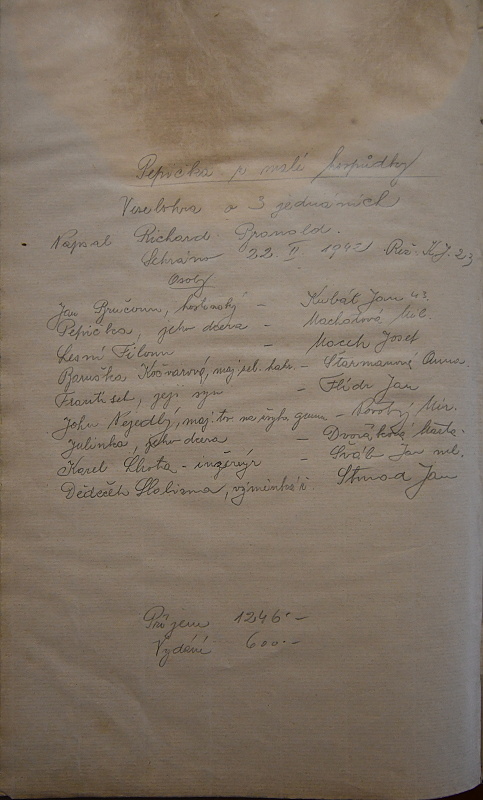 Pepička z malé hospůdky
Veselohra o 3 jednáních
Napsal Richard Branald.
Sehráno 22. II 1942 Rež. K.J. 23
Osoby
Jan Bručoun, hostinský – Kubát Jan 43.
Pepička, jeho dcera – Machaňová Mil.
Lesní Filoun – Macek Josef
Baruška Kočvarová, maj. sel. hos. – Starmanová Anna.
František, její syn – Flídr Jan
John Nejedlý, maj. tov. na žvýk. gumu – Novotný Mir.
Julinka, jeho dcera – Dvořáková Marta.
Karel Lhota – inženýr – Šváb Jan ml.
Dědeček Slabizna, výminkář Strnad Jan
Příjem 1246·–
Vydání 600·–